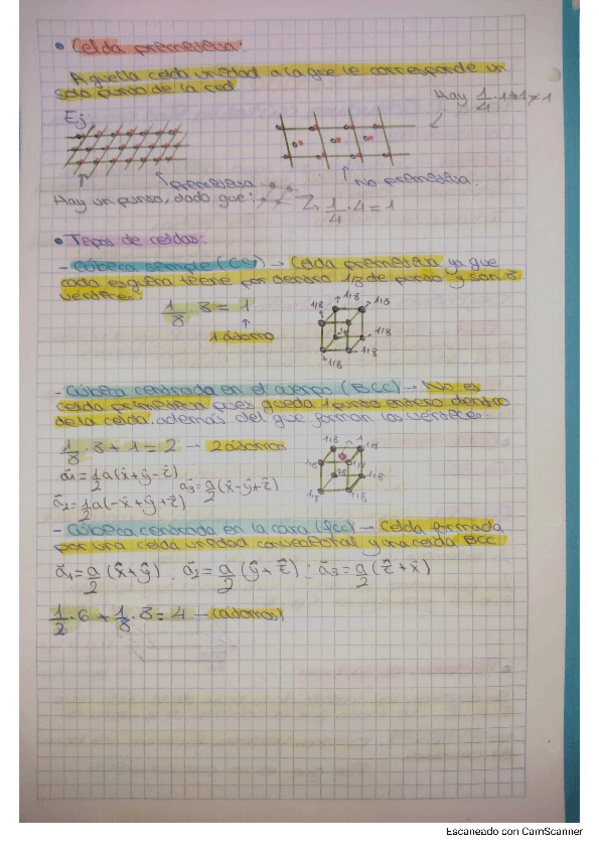 • Celda primitiva:
Aquella celda unidad a la que le corresponde un
solo punto de la red.
Hay 1/4 · 1+1 ≠ 1
Ej:
primitiva
No primitiva.
Hay un punto, dado que: 1/4 · 4 = 1
• Tipos de celdas:
- Cúbica simple (CS) → Celda primitiva ya que
cada esquina tiene por dentro 1/8 de punto y son 8
vértices.
1/8 · 8 = 1
1 átomo
1/8 1/8
1/8 1/8
1/8
1/8
1/8 1/8
- Cúbica centrada en el cuerpo (BCC) → No es
celda primitiva pues queda 1 punto entero dentro
de la celda, además del que forman los vértices.
1/8 · 8 + 1 = 2 → 2 átomos
a⃗1 = 1/2 a(x̂+ŷ-ẑ)
a⃗3 = a/2 (x̂-ŷ+ẑ)
a⃗2 = 1/2 a(-x̂+ŷ+ẑ)
- Cúbica centrada en la cara (fcc) → Celda formada
por una celda unidad convencional y una celda BCC.
a⃗1 = a/2 (x̂+ŷ) . a⃗2 = a/2 (ŷ+ẑ) : a⃗3 = a/2 (ẑ+x̂)
1/2 · 6 + 1/8 · 8 = 4 → (átomos)
Escaneado con CamScanner